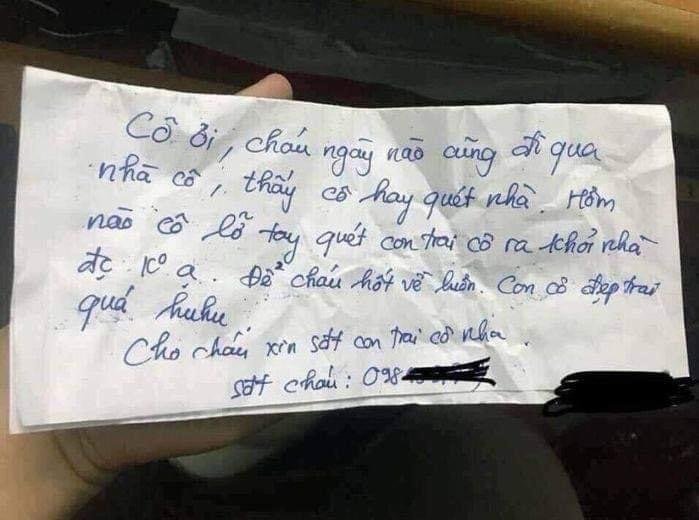 Cô ơi, cháu ngày nào cũng đi qua
nhà cô, thấy cô hay quét nhà. Hôm
nào cô lỡ tay quét con trai cô ra khỏi nhà
đc k⁰ ạ. Để² cháu hốt về luôn. Con cô đẹp trai
quá huhu
Cho cháu xin sđt con trai cô nha.
sđt cháu: 098